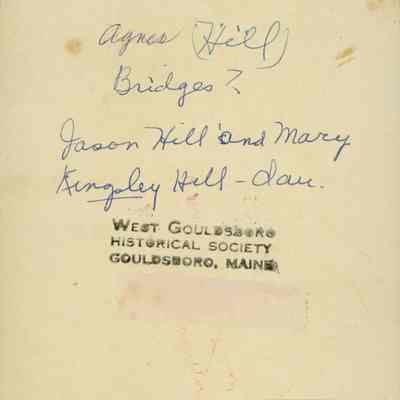 Agnes (Hill)
Bridges?
Jason Hill and Mary
Kingsley Hill - dau.
WEST GOULDSBORO
HISTORICAL SOCIETY
GOULDSBORO, MAINE